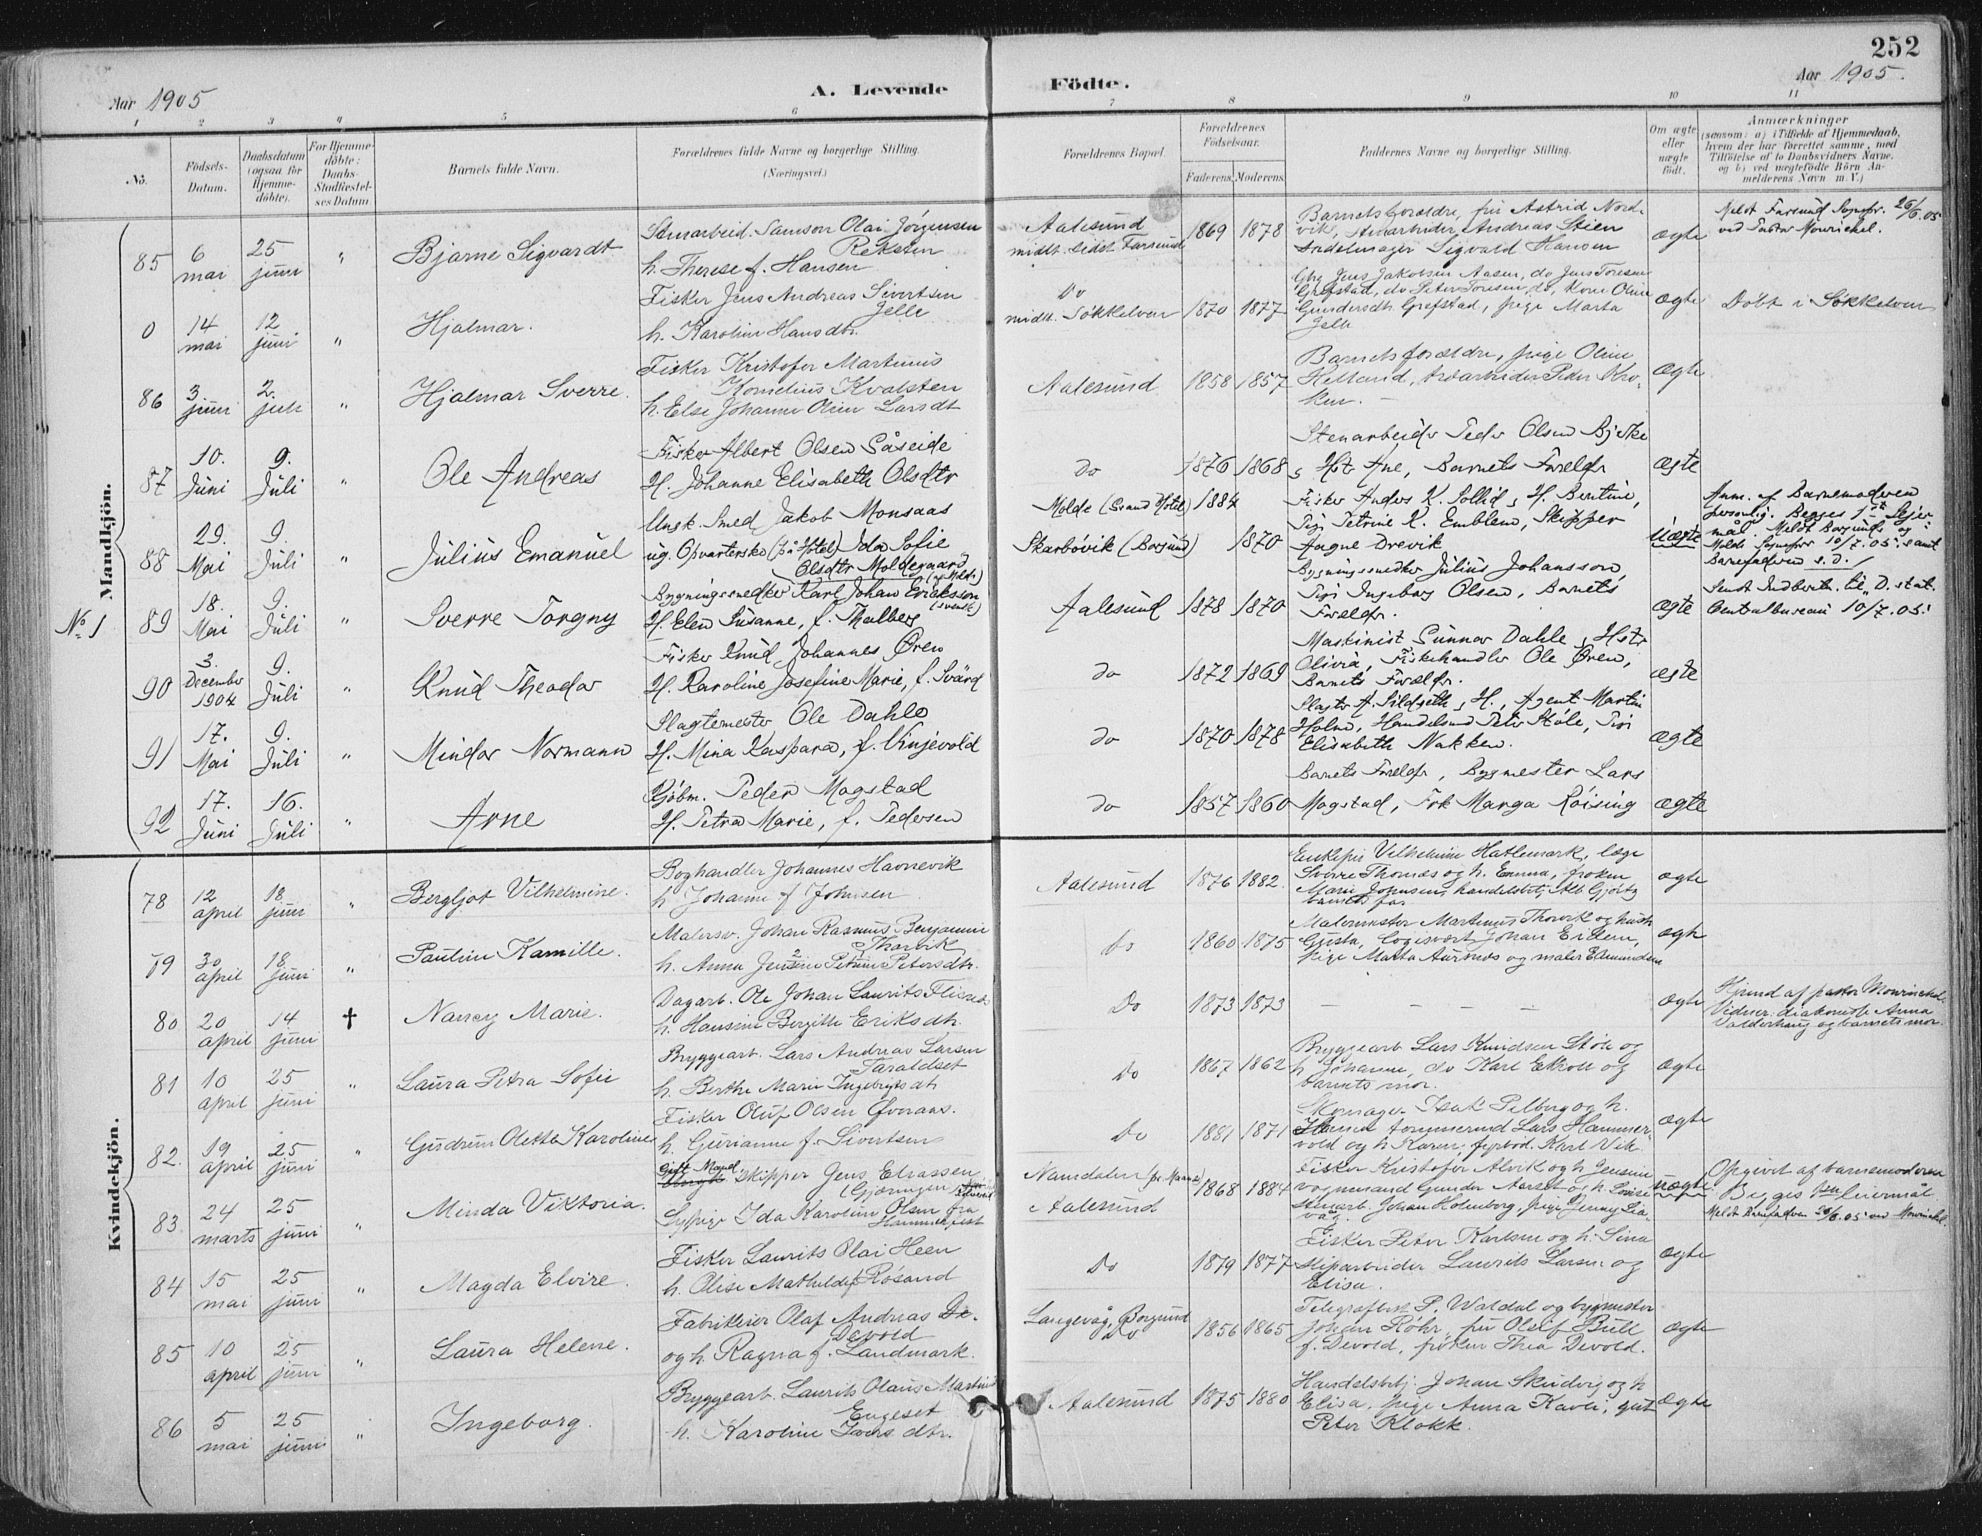 252
Aar 1905
A. Levende
Födte.
Aar 1905.
1 2 3 4 5 6 7 8 9 10 11
No.
Födsels-Datum.
Daabsdatum (ogsaa for Hjemmedöbte).
For Hjemmedöbte: Daabs-Stadfæstelses Datum
Barnets fulde Navn.
Forældrenes fulde Navne og borgerlige Stilling. (Næringsvei.)
Forældrenes Bopæl.
Forældrenes Födselsaar.
Faderens. Moderens.
Faddernes Navne og borgerlige Stilling.
Om ægte eller uægte födt.
Anmærkninger
(saasom: a) i Tilfælde af Hjemmedaab, hvem der har forrettet samme, med Tilföielse af to Daabsvidners Navne, og b) ved uægtefödte Börn Anmelderens Navn m. V.)
Mandkjön.
85 6 mai 25 juni " Bjarne Sigvardt
Stenarbeid. Samson Olai Jörgensen Reksten
h. Therese f. Hansen
Aalesund midt. bidst. Farsund 1869 1878
Barnets forældre, frk Astrid Nordvik, stenarbeider Andreas Stien
Sigvald Hansen
ægte
Meldt Farsund Sognepr. 26/6. 05 ved Pastor Mowinckel.
0 14 mai 12 juni " Hjalmar.
Fisker Jens Andreas Sivertsen Jelle
h. Karoline Hansdtr.
Do midt. Søkkelven 1870 1877
Jens Jakobsen Aasen, do Jens Toresen Grefstad, do Peter Toresen do, Kone Oline Gundersdtr Grefstad, pige Marta Jelle
ægte
Döbt i Søkkelven
86 3 juni 2. juli " Hjalmar Sverre.
Fisker Kristofer Martinus Kornelius Kvalsten
h. Else Johanne Oline Larsdt
Aalesund 1858 1857
Barnets forældre, pige Oline Helland, arbeider Peder
ægte
87 10. Juni 9. Juli " Ole Andreas
Fisker Albert Olsen Såseide
H. Johanne Elisabeth Olsdtr
do 1876 1868
Stenarbeidr Peder Olsen Bjerke
, Hst Ane, Barnets Foreldr
ægte
88 29. Mai 9. Juli " Julius Emanuel
Ungk. Smed Jakob Monsaas
ug. Opvarterske (på Hotel) Ida Sofie Olsdtr Moldegaard (v Molde)
Molde (Grand Hotel) 1884
Skarbövik (Borgund) 1870
Fisker Anders K. Sollid, H. Bentine,
Pige Petrine K. Emblem, Skipper
Aagne Drevik
Uægte
Anm. af Barnemoderen personlig. Begges 1ste Lejermål. Meldt Borgunds og Molde Sognepr 10/7.05. samt Barnefaderen s.d.
No. 1 89 18. Mai 9. Juli " Sverre Torgny
Bygningssnedker Karl Johan Eriksson (svensk)
H. Elen Susanne, f. Thalberg
Aalesund 1878 1870
Bygningssnedker Julius Johansson,
Pige Ingeborg Olsen, Barnets Foreldr.
ægte
Sendt Indberetn. til D. stat. Centralbureau 10/7.05.
90 3. December 1904 9. Juli " Knud Theodor
Fisker Knud Johannes Ören
H. Karoline Josefine Marie, f. Svärd
do 1872 1869
Maskinist Gunnar Dahle, Hstr
Olivia, Fiskehandler Ole Ören,
Barnets Forældr.
ægte
91 17. Mai 9. Juli " Mindor Normann
Slagtemester Ole Dahle
H. Mina Kaspara, f. Vinjevold
do 1870 1878
Slagtr A. Sildseth, H., Agent Martin
Holm, Handelsmd Peter Støle, Pige
Elisabeth Nakken.
ægte
92 17. Juni 16. Juli " Arne
Kjöbm. Peder Magstad
H. Petra Marie, f. Pedersen
do 1857 1860
Barnets Foreldr, Bygmester Lars
Magstad, Frk Marga Röising
ægte
Kvindekjön.
78 12 april 18 juni " Bergljot Vilhelmine.
Boghandler Johannes Havnevik
h Johanne f Johnsen
Aalesund 1876 1882.
Enkefru Vilhelmine Hatlemark, læge
Sverre Thomæs og h. Emma, frøken
Marie Johnsen, handelsbetj. Alb Gjörtz
barnets far.
ægte
79 30 april 18 juni " Pauline Kamille.
Malersv. Johan Rasmus Benjamin Thorvik
h. Anna Jensine Petrine Petersdtr.
do 1860 1875
Malermester Martinus Thorvik og hustr
Gusta, Logisvært Johan Eidem,
pige Marta Aursnes og maler Edmundsen
ægte
80 20 april 14 juni † Nancy Marie.
Dagarb. Ole Johan Laurits
h. Hansine Bergitte Eriksdtr.
Do 1873 1873
— — —
ægte
Hjemd af pastor Mowinckel.
Vidner: diakonisse Anna Valderhaug og barnets mor.
81 10 april 25 juni " Laura Petra Sofie
Bryggearb. Lars Andreas Larsen Taraldset
h. Berthe Marie Ingebrigtsdtr
Do 1867 1862
Bryggearb Lars Knudsen Støle og
h Johanne, do Karl Ekroll og
barnets mor.
ægte
82. 19 april 25 juni " Gudrun Olette Karoline
Fisker Oluf Olsen Överaas.
h. Gurianne f. Sivertsen
Do 1881 1871
Skomager Isak Pilberg og h.
Hanna, tømmermd Lars Hammervold og h Karen, fyrbød. Karl Vik.
ægte
83. 24 marts 25 juni " Minda Viktoria.
Gift Mand Skipper Jens Eliassen (Gjæringen)
Sypige Ida Karoline Olsen fra Hammerfest
Namdalen 1868 1884
Aalesund
Fisker Kristofer Alvik og h Jensine
vognmand Gunder Aarset og h Lovise
stenarb. Johan Holenborg, pige Jenny
uægte
Opgivet af barnemoderen
Begges leiermål
84 15 mai 25 juni " Magda Elvire.
Fisker Laurits Olai Heen
h. Olise Mathilde f Rösand
Do 1879 1877
Fisker Peter Karlsen og h. Sina
Sliparbeider Laurits Larsen og
Elisa.
ægte
85 10 april 25 juni " Laura Helene.
Fabrikeier Olaf Andreas Devold
og h. Ragna f. Landmark.
Langevåg, Borgund 1856 1865
Telegrafbest P. Waldal og bygmester
Johan Röhr, fru Olsif Bull
f. Devold, frøken Thea Devold.
ægte
86 5 mai 25 juni " Ingeborg.
Bryggearb. Laurits Olaus Martinus Engeset
h. Karoline Iversdtr.
Aalesund 1875 1880
Handelsbetj. Johan Skudvig og h
Elisa, pige Anna Kavli, gut
Peter Klokk.
ægte